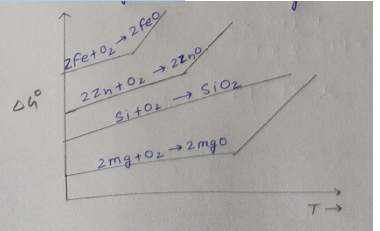 2fe+O₂→2feO
2Zn+O₂→2ZnO
ΔG°
Si+O₂→SiO₂
2mg+O₂→2mgO
T→